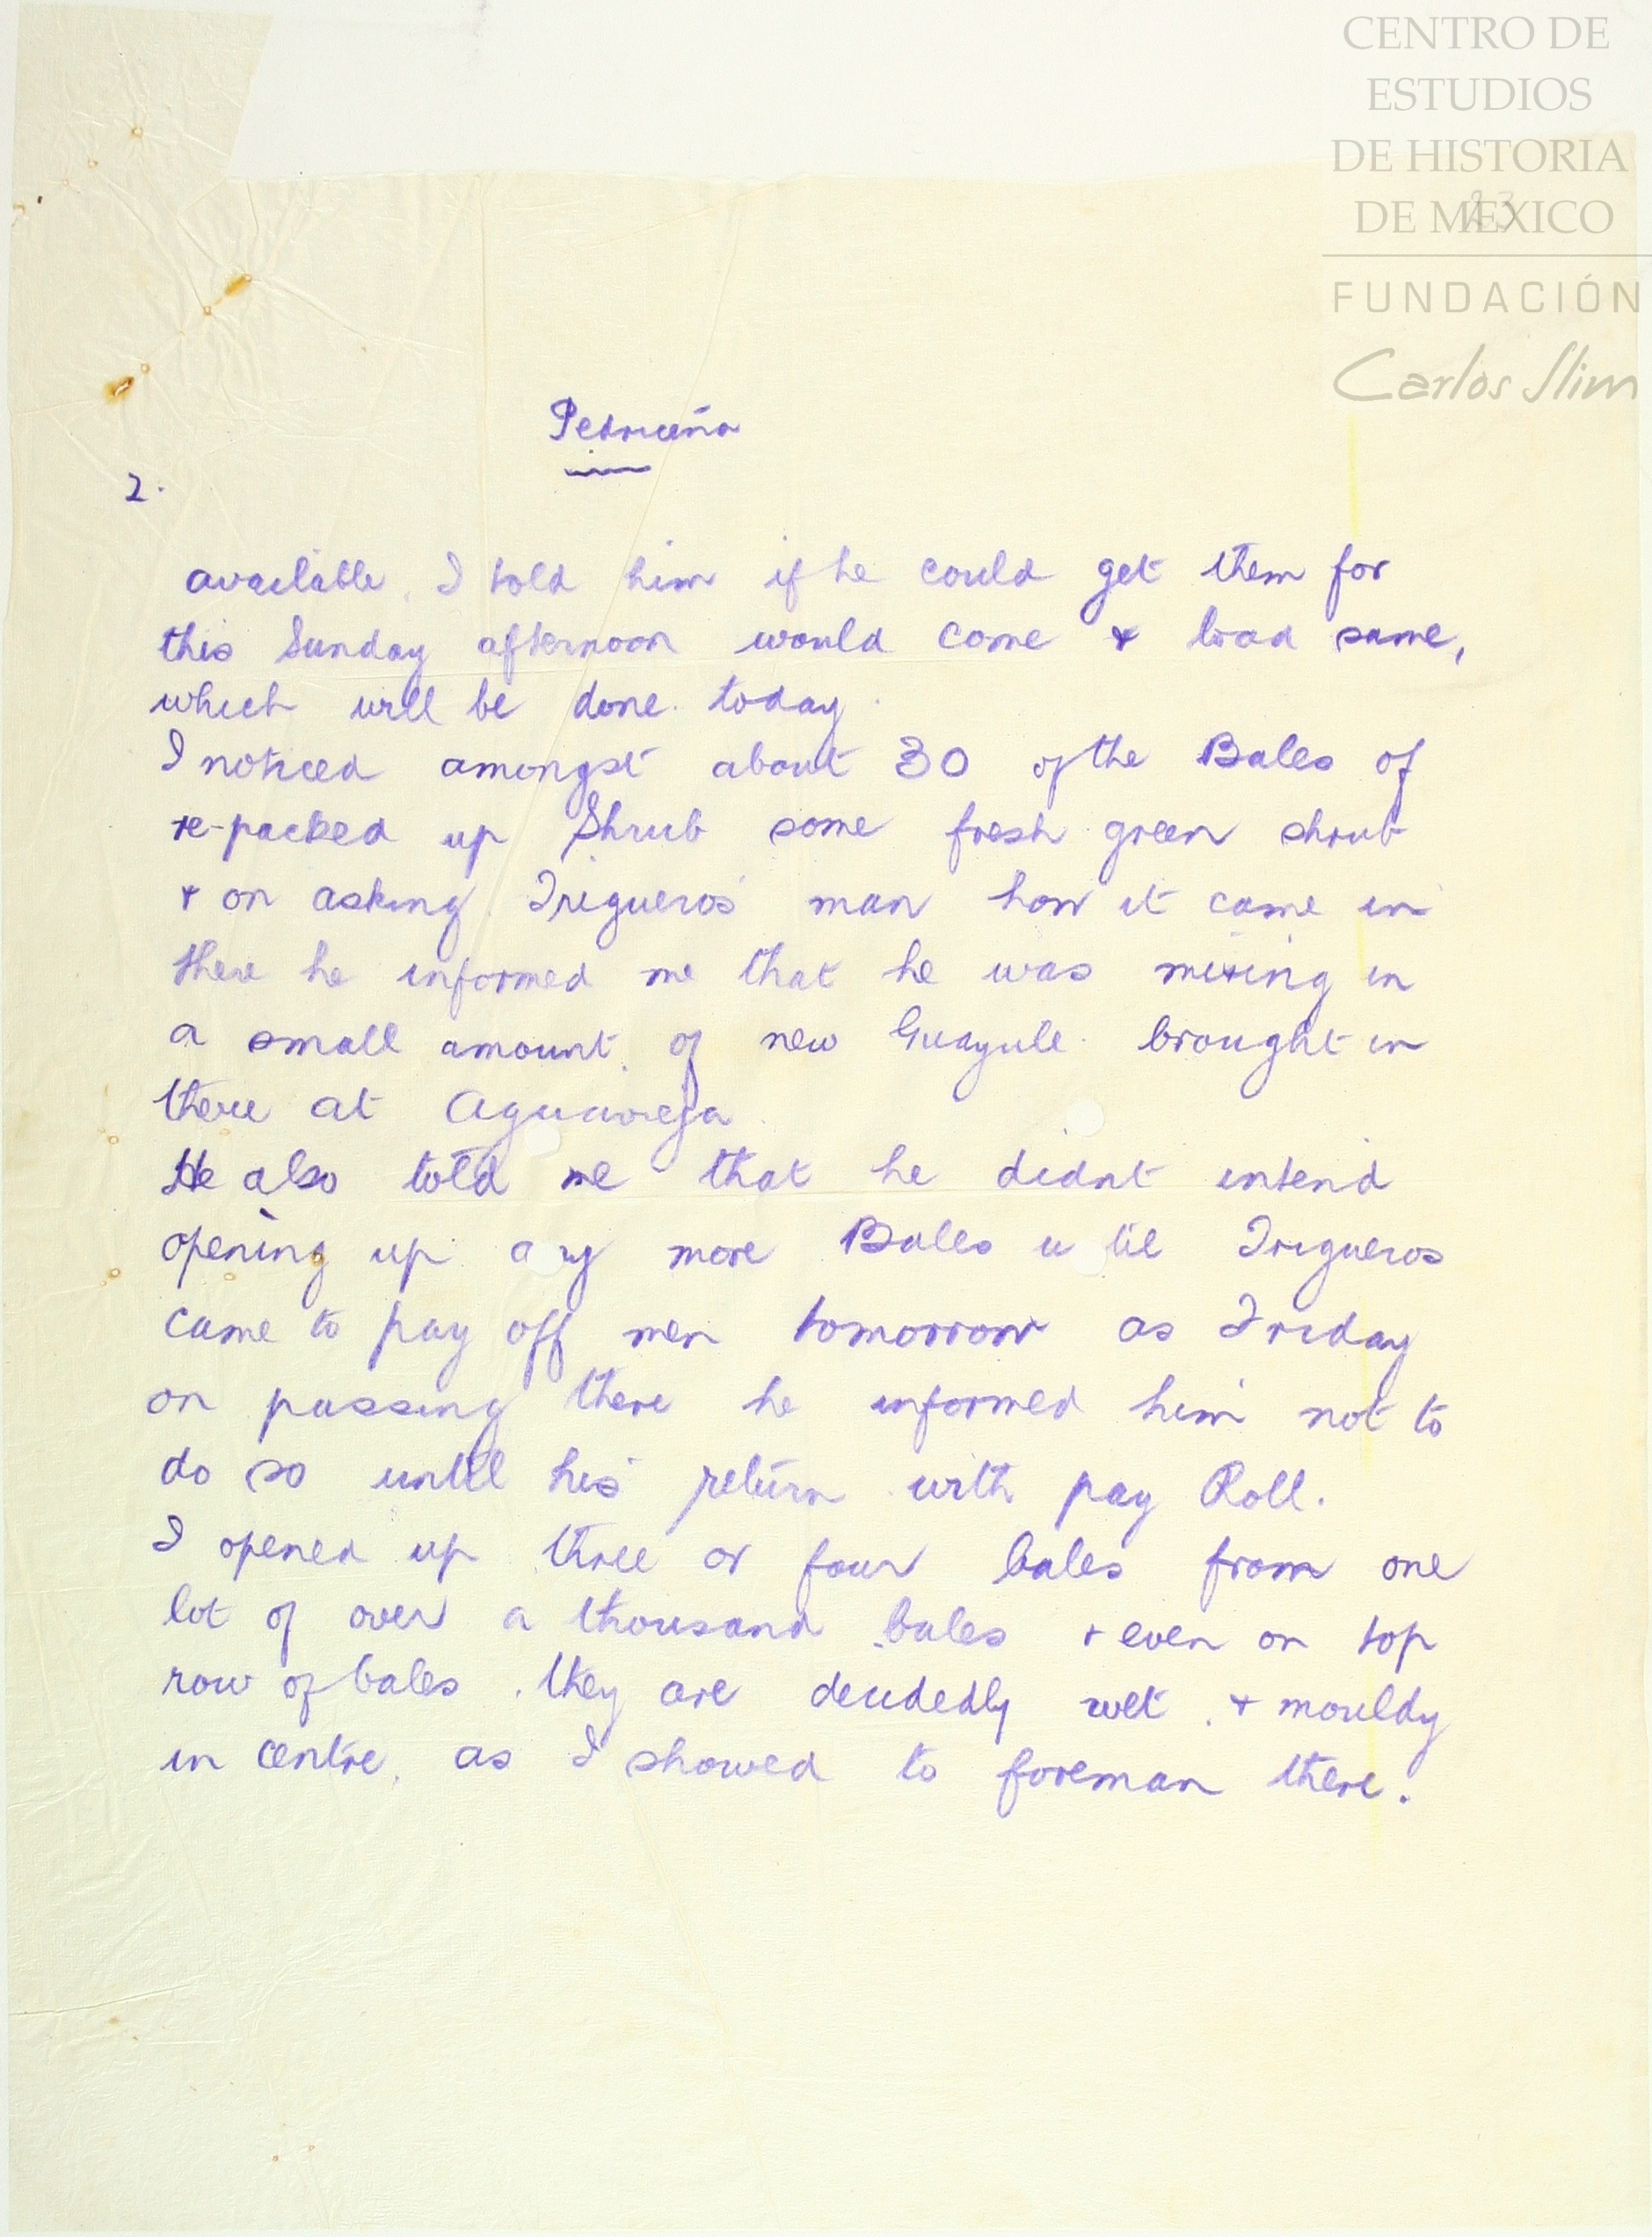 CENTRO DE
ESTUDIOS
DE HISTORIA
DE MEXICO
23
FUNDACIÓN
Carlos Slim
Pedriceña
2.
available. I told him if he could get them for
this Sunday afternoon would come & load same,
which will be done today.
I noticed amongst about 30 of the Bales of
re-packed up Shrub some fresh green shrub
& on asking Trigueros' man how it came in
there he informed me that he was mixing in
a small amount of new Guayule brought in
there at Aguavieja.
He also told me that he didnt intend
opening up a y more Bales u til Trigueros
came to pay off men tomorrow as Friday
on passing there he informed him not to
do so until his return with pay Roll.
I opened up three or four bales from one
lot of over a thousand bales & even on top
row of bales they are decidedly wet & mouldy
in centre, as I showed to foreman there.